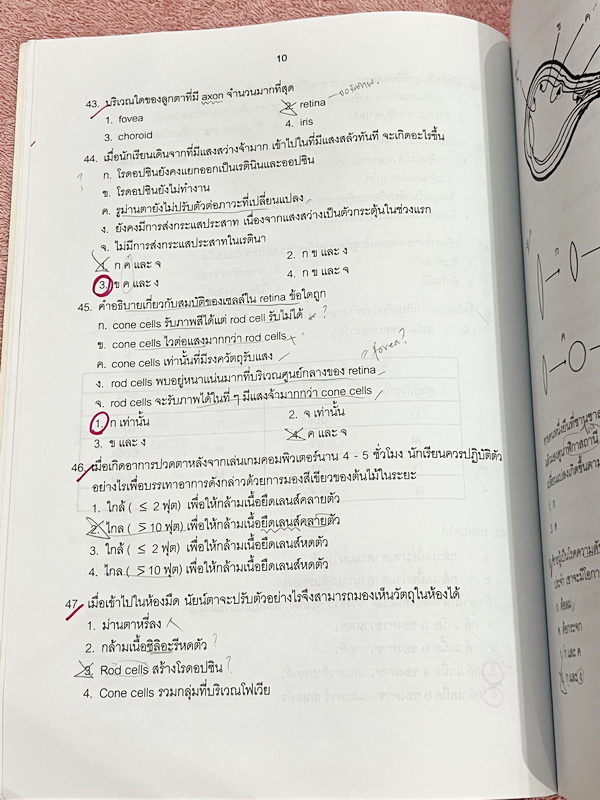 10
43. บริเวณใดของลูกตาที่มี axon จำนวนมากที่สุด
1. fovea 2. retina
3. choroid 4. iris
44. เมื่อนักเรียนเดินจากที่มีแสงสว่างจ้ามาก เข้าไปในที่มีแสงสลัวทันที จะเกิดอะไรขึ้น
ก. โรดอปซินยังคงแยกออกเป็นเรตินินและออปซิน
ข. โรดอปซินยังไม่ทำงาน
ค. รูม่านตายังไม่ปรับตัวต่อภาวะที่เปลี่ยนแปลง
ง. ยังคงมีการส่งกระแสประสาท เนื่องจากแสงสว่างเป็นตัวกระตุ้นในช่วงแรก
จ. ไม่มีการส่งกระแสประสาทในเรตินา
1. ก ค และ จ 2. ก ข และ ง
3. ข ค และ ง 4. ก ข และ จ
45. คำอธิบายเกี่ยวกับสมบัติของเซลล์ใน retina ข้อใดถูก
ก. cone cells รับภาพสีได้แต่ rod cell รับไม่ได้ ?
ข. cone cells ไวต่อแสงมากกว่า rod cells
ค. cone cells เท่านั้นที่มีรงควัตถุรับแสง
fovea?
ง. rod cells พบอยู่หนาแน่นมากที่บริเวณศูนย์กลางของ retina
จ. rod cells จะรับภาพได้ในที่ ๆ มีแสงจ้ามากกว่า cone cells
1. ก เท่านั้น 2. จ เท่านั้น
3. ข และ ง 4. ค และ จ
46. เมื่อเกิดอาการปวดตาหลังจากเล่นเกมคอมพิวเตอร์นาน 4 - 5 ชั่วโมง นักเรียนควรปฏิบัติตัว
อย่างไรเพื่อบรรเทาอาการดังกล่าวด้วยการมองสีเขียวของต้นไม้ในระยะ
1. ใกล้ ( ≤ 2 ฟุต) เพื่อให้กล้ามเนื้อยึดเลนส์คลายตัว
2. ไกล ( ≥ 10 ฟุต) เพื่อให้กล้ามเนื้อยึดเลนส์คลายตัว
3. ใกล้ ( ≤ 2 ฟุต) เพื่อให้กล้ามเนื้อยึดเลนส์หดตัว
4. ไกล ( ≥ 10 ฟุต) เพื่อให้กล้ามเนื้อยึดเลนส์หดตัว
47. เมื่อเข้าไปในห้องมืด นัยน์ตาจะปรับตัวอย่างไรจึงสามารถมองเห็นวัตถุในห้องได้
1. ม่านตาหรี่ลง
2. กล้ามเนื้อซิลิอะรีหดตัว ?
3. Rod cells สร้างโรดอปซิน ?
4. Cone cells รวมกลุ่มที่บริเวณโฟเวีย